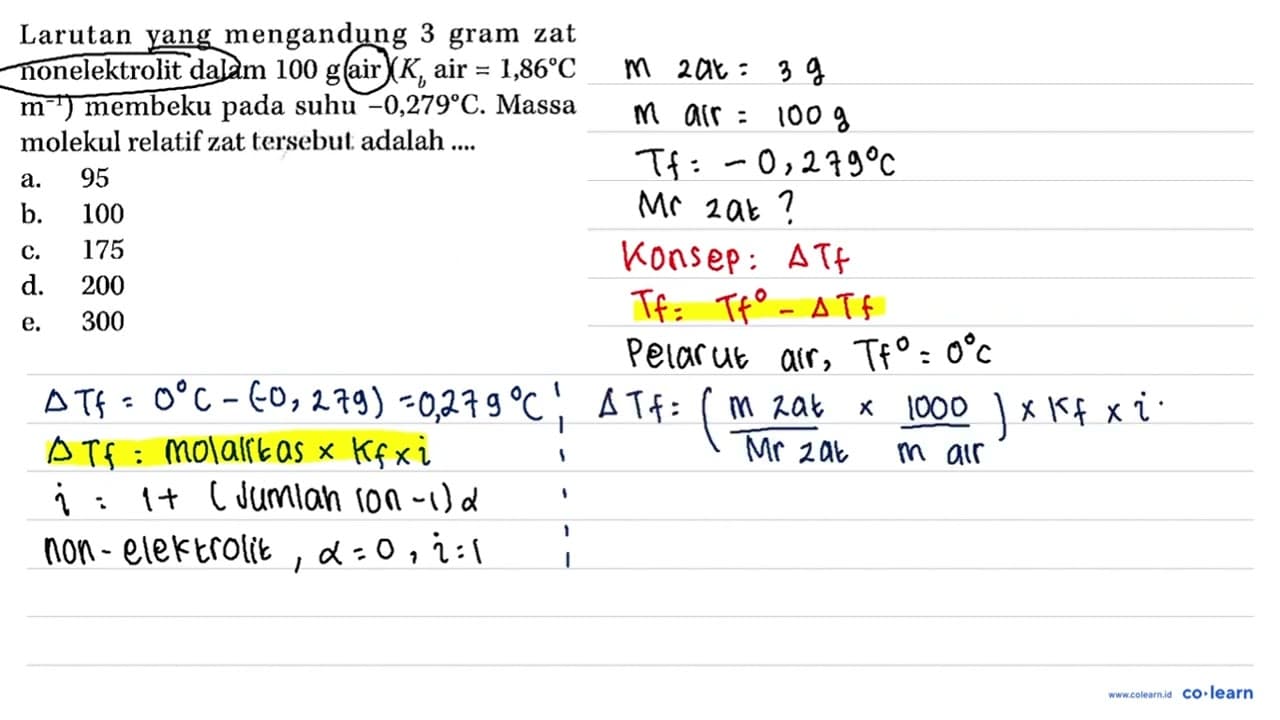 Larutan yang mengandung 3 gram zat
nonelektrolit dalam 100 g air (K_b air = 1,86°C
m⁻¹) membeku pada suhu –0,279°C. Massa
molekul relatif zat tersebut adalah ....
a. 95
b. 100
c. 175
d. 200
e. 300
m zat = 3 g
m air = 100 g
Tf = -0,279°C
Mr zat ?
Konsep : ΔTf
Tf = Tf° - ΔTf
Pelarut air, Tf° = 0°C
ΔTf = 0°C - (-0,279) = 0,279°C
ΔTf = molalitas x Kf x i
i = 1+ (Jumlah ion -1)α
non-elektrolit, α = 0, i = 1
ΔTf = (m zat/Mr zat x 1000/m air) x Kf x i.
www.colearn.id co·learn